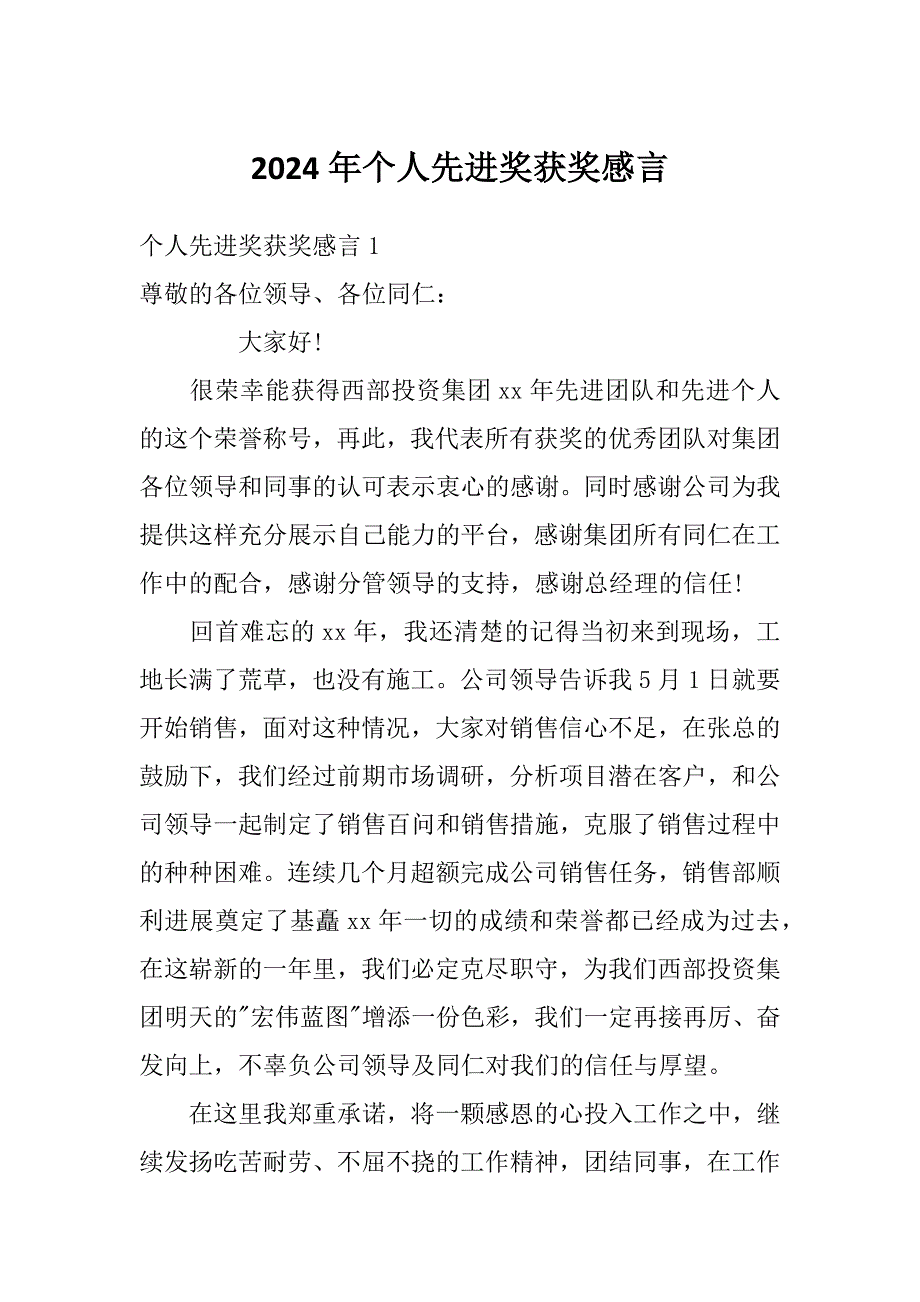 2024年个人先进奖获奖感言
个人先进奖获奖感言1
尊敬的各位领导、各位同仁：
大家好！
很荣幸能获得西部投资集团xx年先进团队和先进个人
的这个荣誉称号，再此，我代表所有获奖的优秀团队对集团
各位领导和同事的认可表示衷心的感谢。同时感谢公司为我
提供这样充分展示自己能力的平台，感谢集团所有同仁在工
作中的配合，感谢分管领导的支持，感谢总经理的信任！
回首难忘的xx年，我还清楚的记得当初来到现场，工
地长满了荒草，也没有施工。公司领导告诉我5月1日就要
开始销售，面对这种情况，大家对销售信心不足，在张总的
鼓励下，我们经过前期市场调研，分析项目潜在客户，和公
司领导一起制定了销售百问和销售措施，克服了销售过程中
的种种困难。连续几个月超额完成公司销售任务，销售部顺
利进展奠定了基矗xx年一切的成绩和荣誉都已经成为过去，
在这崭新的一年里，我们必定克尽职守，为我们西部投资集
团明天的"宏伟蓝图"增添一份色彩，我们一定再接再厉、奋
发向上，不辜负公司领导及同仁对我们的信任与厚望。
在这里我郑重承诺，将一颗感恩的心投入工作之中，继
续发扬吃苦耐劳、不屈不挠的工作精神，团结同事，在工作